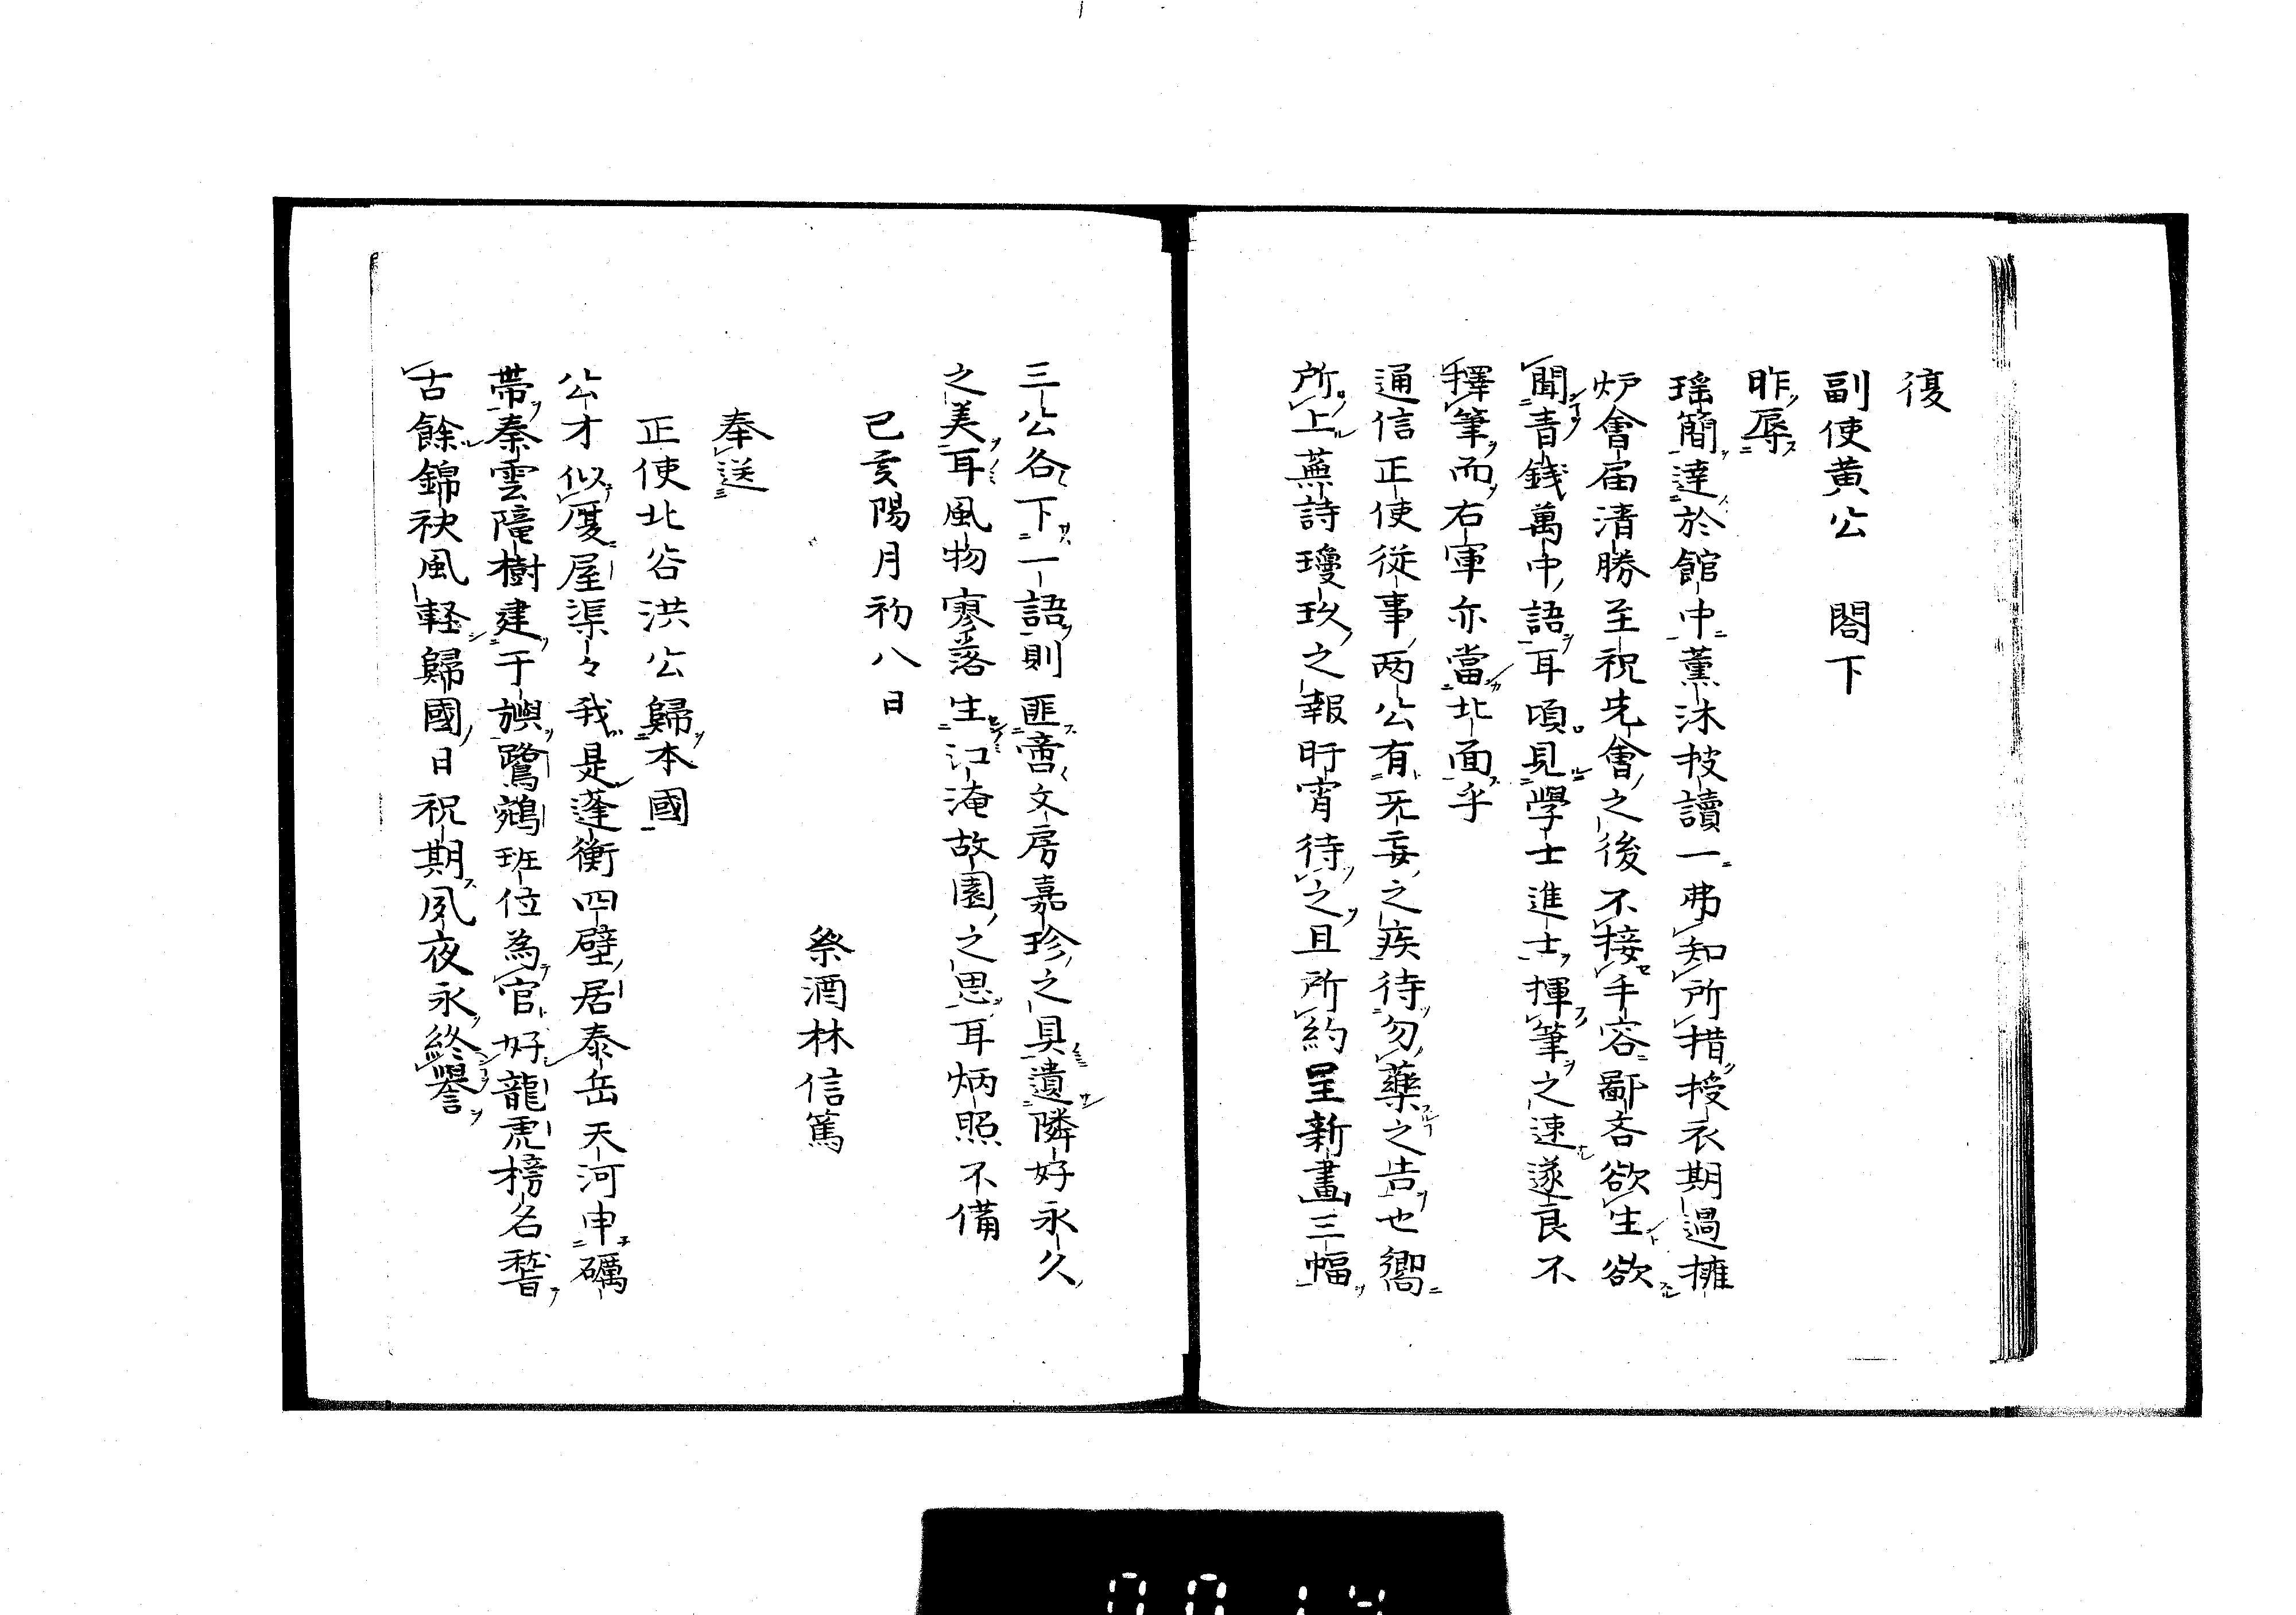 復
副使黄公　閤下
昨辱
瑶簡達於館中薫沐披讀一弗知所措授衣期過擁
炉會届清勝至祝先會之後不接手容鄙吝欲生欲
聞青銭萬中語耳頃見學士進士揮筆之速遂良不
擇筆而右軍亦當北面乎
通信正使従事両公有无妄之疾待勿藥之告也嚮
所上蕪詩瓊玖之報旰宵待之且所約呈新畫三幅
三公各下一語則匪啻文房嘉珍之具遺隣好永久
之美耳風物寥落生江淹故園之思耳炳照不備
己亥陽月初八日
祭酒林信篤
奉送
正使北谷洪公歸本國
公才似厦屋渠々我是蓬衡四壁居泰岳天河申礪
帯秦雲隴樹建于旟鷺鵷班位為官好龍虎榜名稽
古餘錦袂風軽歸國日祝期夙夜永終譽